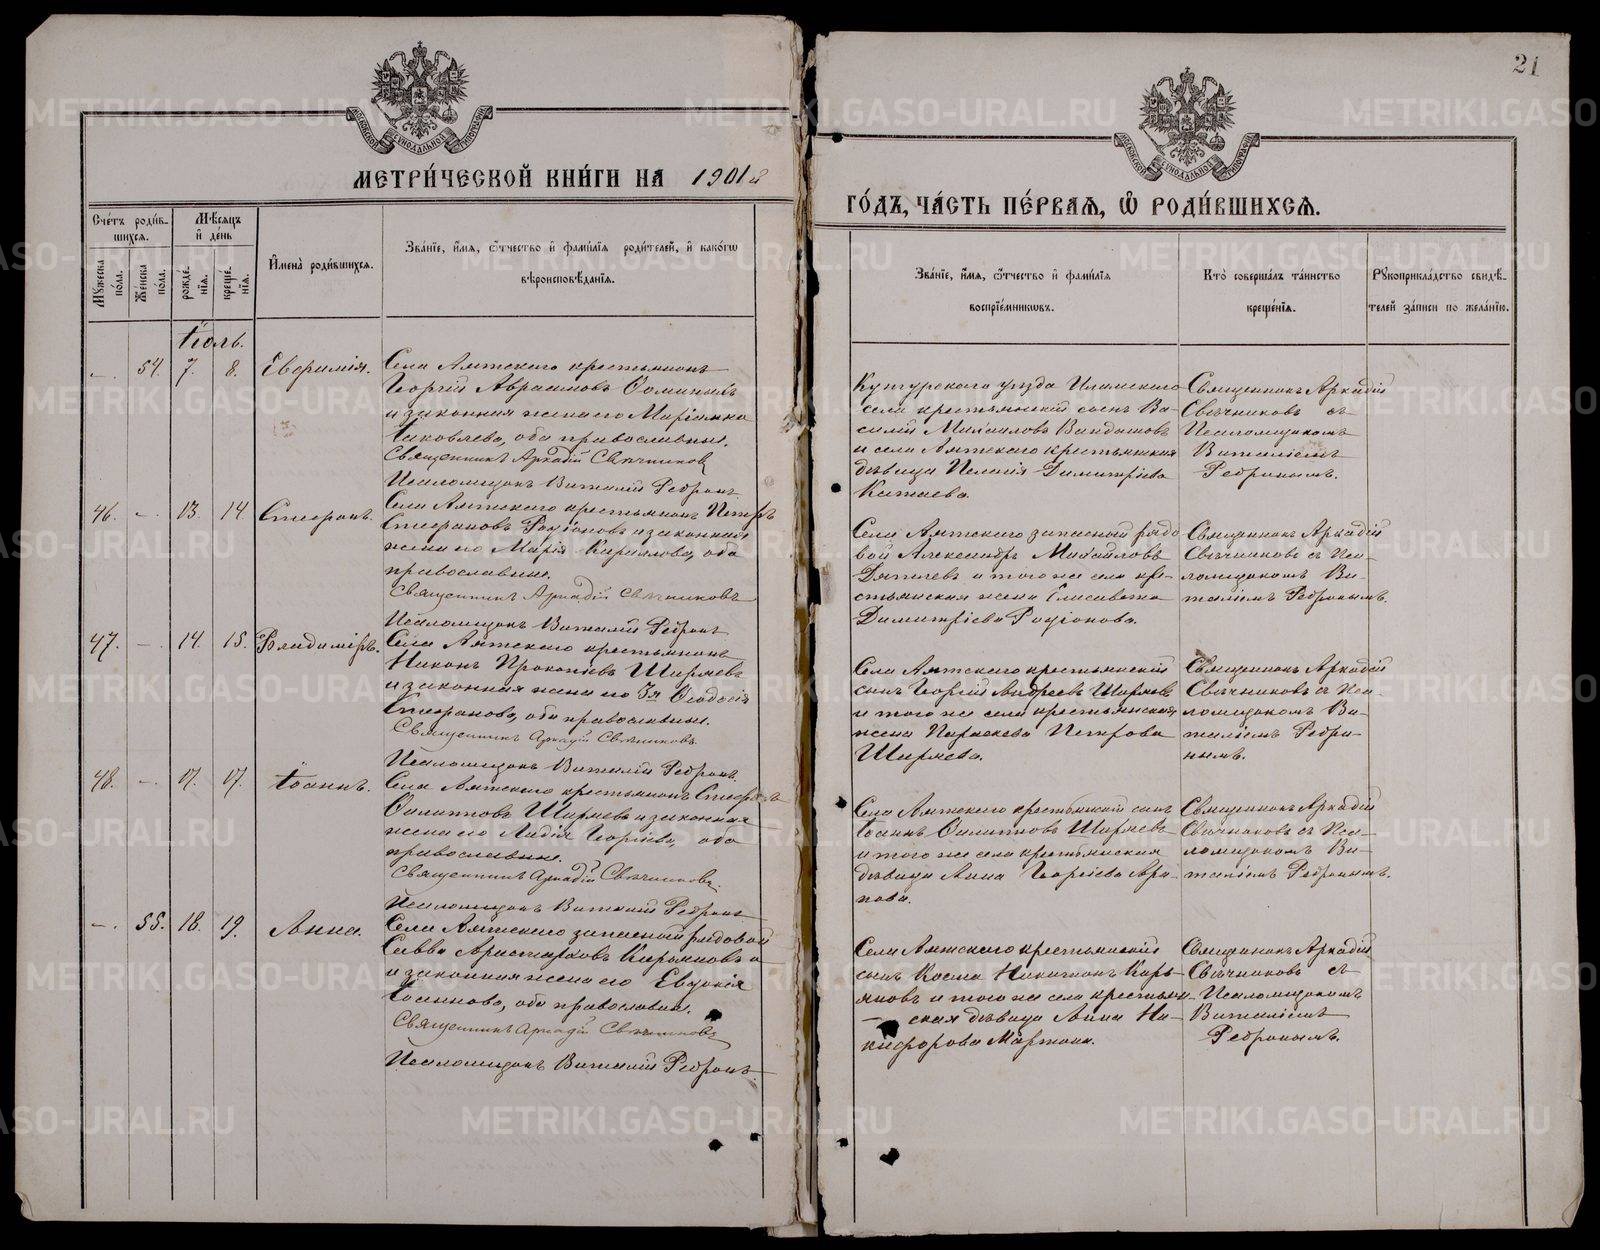 21
МОСКОВСКОЙ СѴНОДАЛЬНОЙ ТИПОГРАФІИ
МОСКОВСКОЙ СѴНОДАЛЬНОЙ ТИПОГРАФІИ
МЕТРИ́ЧЕСКОЙ КНИ́ГИ НА 1901й
ГО́ДЪ, ЧА́СТЬ ПЕ́РВАЯ, Ѡ РОДИ́ВШИХСЯ.
Сче́тъ роди́в-
шихся.
Мужеска по́ла.
Же́нска по́ла.
Мѣ́сяцъ
и҆ де́нь
рожде́нія.
креще́нія.
И҆мена̀ роди́вшихся.
Зва́ніе, и҆́мя, ѻ҆́тчество и҆ фами́лія роди́телей, и҆ како́гѡ
вѣроисповѣ́данія.
Зва́ніе, и҆́мя, ѻ҆́тчество и҆ фами́лія
воспріе́мниковъ.
Кто̀ соверша́лъ та́инство
креще́нія.
Рукоприкла́дство свидѣ́-
телей за́писи по жела́нію.
Іюль.
—. 54. 7. 8. Евфимія.
Села Аятскаго крестьянинъ
Георгій Авраамовъ
и законная жена его Маріамна
Іаковлева, оба православные.
Священникъ Аркадій Свѣчниковъ
Псаломщикъ Виталій Ребринъ.
Кунгурскаго уѣзда
села крестьянскій сынъ Ва-
силій Михаиловъ
и села Аятскаго крестьянская
дѣвица Пелагія Димитріева
Китаева.
Священникъ Аркадій
Свѣчниковъ съ
Псаломщикомъ
Виталіемъ
Ребринымъ.
46. —. 13. 14. Стефанъ.
Села Аятскаго крестьянинъ Петръ
Стефановъ Родіоновъ и законная
жена его Марія Кириллова, оба
православные.
Священникъ Аркадій Свѣчниковъ
Псаломщикъ Виталій Ребринъ
Села Аятскаго запасный рядо
вой Александръ Михаиловъ
и того же села кре-
стьянская жена Елисавета
Димитріева Родіонова.
Священникъ Аркадій
Свѣчниковъ съ Пса-
ломщикомъ Ви-
таліемъ Ребринымъ.
47. —. 14. 15. Владиміръ.
Села Аятскаго крестьянинъ
Никонъ Прокопіевъ Ширяевъ
и законная жена его Ѳеодосія
Стефанова, оба православные.
Священникъ Аркадій Свѣчниковъ.
Псаломщикъ Виталій Ребринъ.
Села Аятскаго крестьянскій
сынъ Георгій Андреевъ Ширяевъ
и того же села крестьянская
жена Параскева Петрова
Ширяева.
Священникъ Аркадій
Свѣчниковъ съ Пса-
ломщикомъ Ви-
таліемъ Ребри-
нымъ.
48. —. 17. 17. Іоаннъ.
Села Аятскаго крестьянинъ Стефанъ
Филиповъ Ширяевъ и законная
жена его Лидія Георгіева, оба
православные.
Священникъ Аркадій Свѣчниковъ.
Псаломщикъ Виталій Ребринъ
Села Аятскаго крестьянскій сынъ
Іоаннъ Филиповъ Ширяевъ
и того же села крестьянская
дѣвица Анна Георгіева Ара-
пова.
Священникъ Аркадій
Свѣчниковъ съ Пса-
ломщикомъ Ви-
таліемъ Ребринымъ.
—. 55. 18. 19. Анна.
Села Аятскаго запасный рядовой
Савва Аристарховъ Кирьяновъ
и законная жена его Евдокія
Іоаннова, оба православные.
Священникъ Аркадій Свѣчниковъ
Псаломщикъ Виталій Ребринъ.
Села Аятскаго крестьянскій
сынъ Косма Никитинъ Кирь-
яновъ и того же села крестьян-
ская дѣвица Анна Ни-
кифорова
Священникъ Аркадій
Свѣчниковъ съ
Псаломщикомъ
Виталіемъ
Ребринымъ.
METRIKI.GASO-URAL.RU